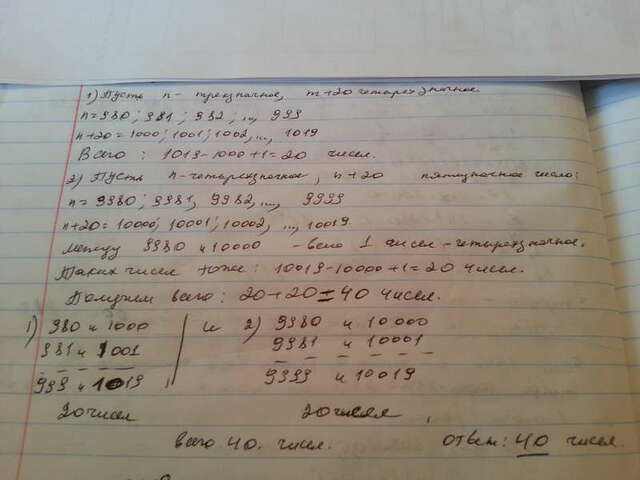 1) Пусть n - трехзначное, m+20 четырехзначное.
n = 980; 981; 982; ..., 999
n+20 = 1000; 1001; 1002, ..., 1019
Всего: 1019-1000+1=20 чисел.
2) Пусть n-четырехзначное, n+20 пятизначное число:
n = 9980; 9981, 9982, ..., 9999
n+20 = 10000; 10001; 10002, ..., 10019
между 9980 и 10000 - всего 1 чисел - четырехзначное.
Таких чисел тоже: 10019-10000+1=20 чисел.
Получаем всего: 20+20=40 чисел.
1) 980 и 1000 и 2) 9980 и 10000
981 и 1001 9981 и 10001
999 и 1019, 9999 и 10019
20 чисел 20 чисел,
всего 40. чисел. ответ: 40 чисел.